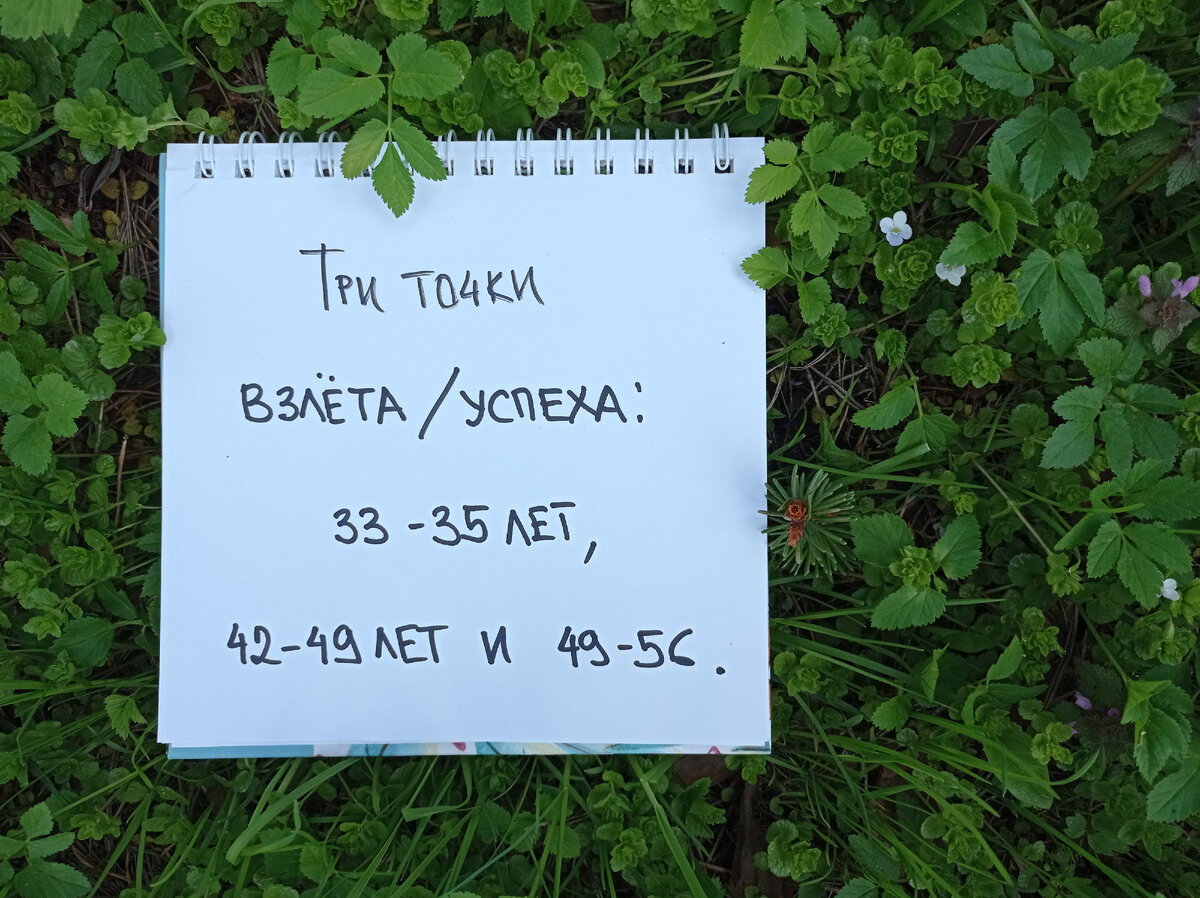 Три точки
взлёта/успеха:
33-35 лет,
42-49 лет и 49-56.